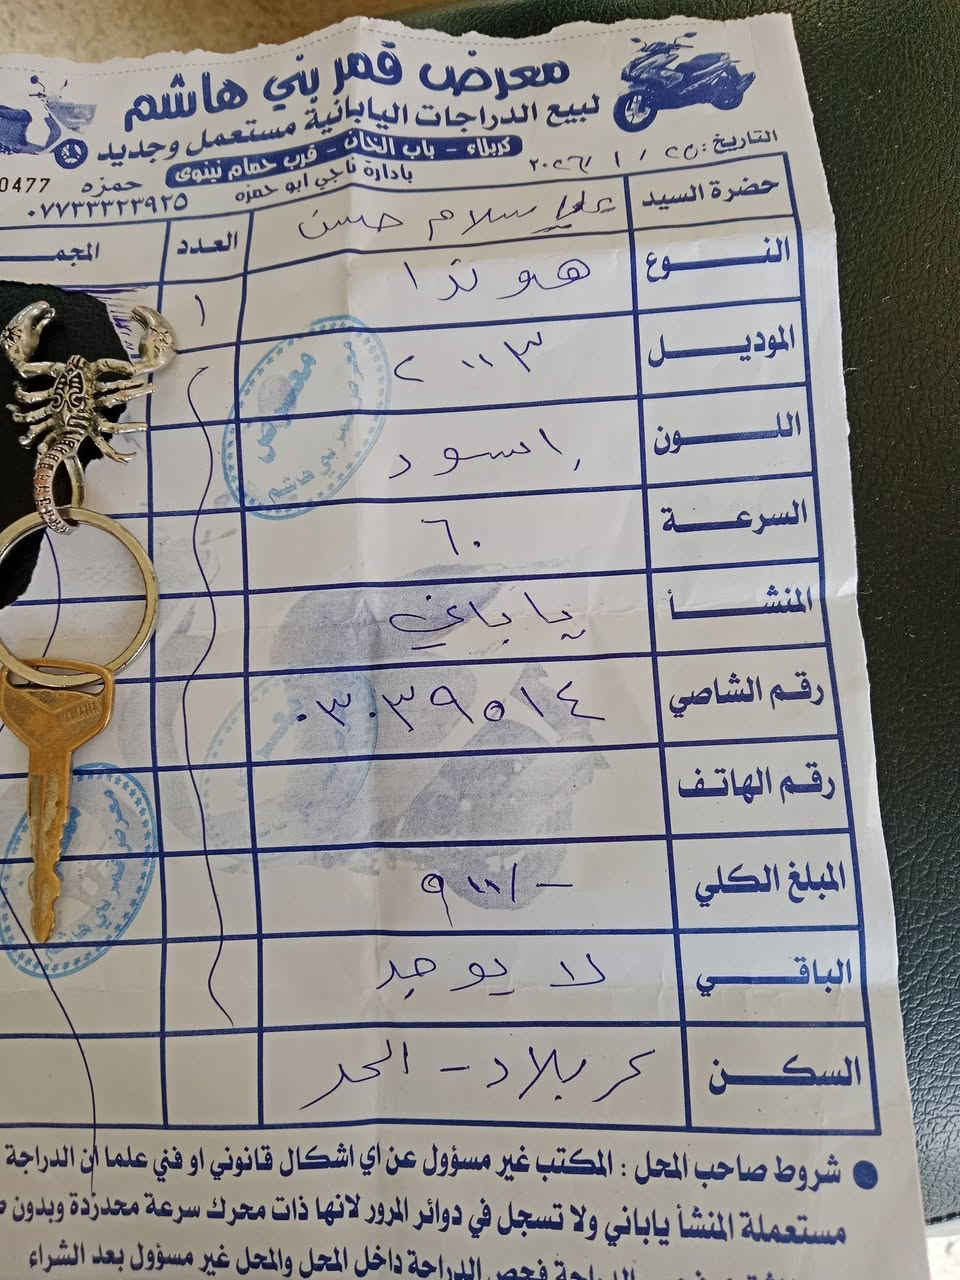 معرض قمر بني هاشم
لبيع الدراجات اليابانية مستعمل وجديد
كربلاء - باب الخان - قرب حمام نينوى
بادارة ناجي ابو حمزه
حمزه 0477
٠٧٧٣٣٣٢٣٩٢٥
التاريخ: ٢٥ / ١ / ٢٠٢٦
حضرة السيد علي سلام حسن العدد المجمـ
النـــوع هوندا ١ ١
الموديـــل ٢٠٠٣
اللـــون اسود
السرعـــة ٦٠
المنشـــأ ياباني
رقم الشاصي ٠٣٠٣٩٥١٤
رقم الهاتف
المبلغ الكلي ٩٠٠/-
الباقـــي لا يوجد
السكـــن كربلاء - الحر
معرض قمر بني هاشم
معرض قمر بني هاشم
YAMAHA
● شروط صاحب المحل : المكتب غير مسؤول عن أي اشكال قانوني او فني علما أن الدراجة
مستعملة المنشأ ياباني ولا تسجل في دوائر المرور لانها ذات محرك سرعة محدزدة وبدون
الدراجة فحص الدراجة داخل المحل والمحل غير مسؤول بعد الشراء